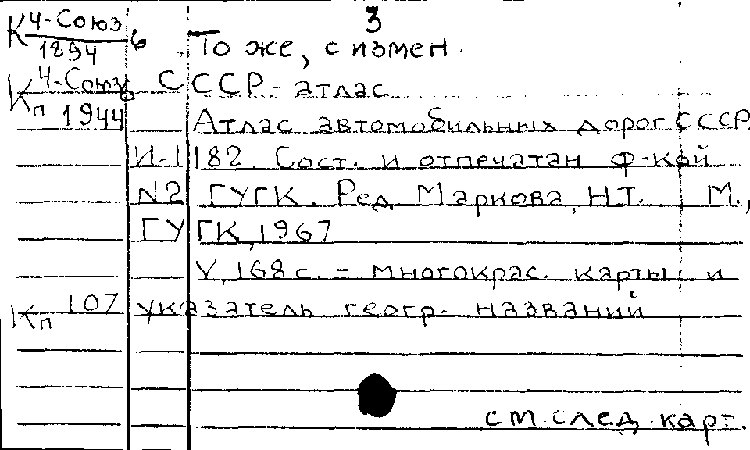 3
К 4-Союз
1894 6 То же, с измен.
Кп 4-Союз СССР - атлас
1944 Атлас автомобильных дорог СССР.
И-1182. Сост. и отпечатан ф-кой
№2 ГУГК. Ред. Маркова, Н.Т. М.,
ГУГК, 1967
V, 168 с. - многокрас. карты и
Кп 107 указатель геогр. названий
см. след. карт.